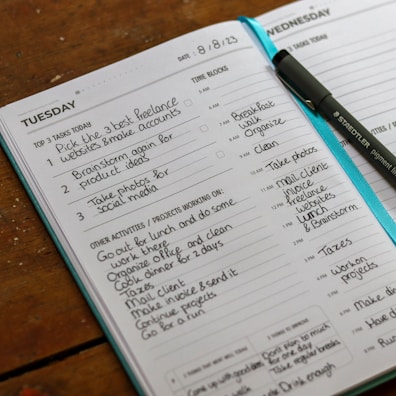 DATE: 8/8/23
TUESDAY
TOP 3 TASKS TODAY
1 Pick the 3 best freelance
websites & make accounts
2 Brainstorm again for
product ideas
3 Take photos for
social media
OTHER ACTIVITIES / PROJECTS WORKING ON:
Go out for lunch and do some
work there
Organize office and clean
Cook dinner for 2 days
Taxes
Mail client
Make invoice & send it
Continue projects
Go for a run
TIME BLOCKS
6 AM
7 AM Breakfast
walk
8 AM Organize
9 AM clean
10 AM Take photos
11 AM mail client
invoice
freelance
websites
Lunch
& Brainstorm
Taxes
work on
projects
Make din
Have di
Run
THINGS THAT WENT WELL TODAY
Came up with good ideas
THINGS TO IMPROVE
Don't plan to much
for one day
Take regular breaks
Drink enough
WEDNESDAY
TASKS TODAY
STAEDTLER
pigment